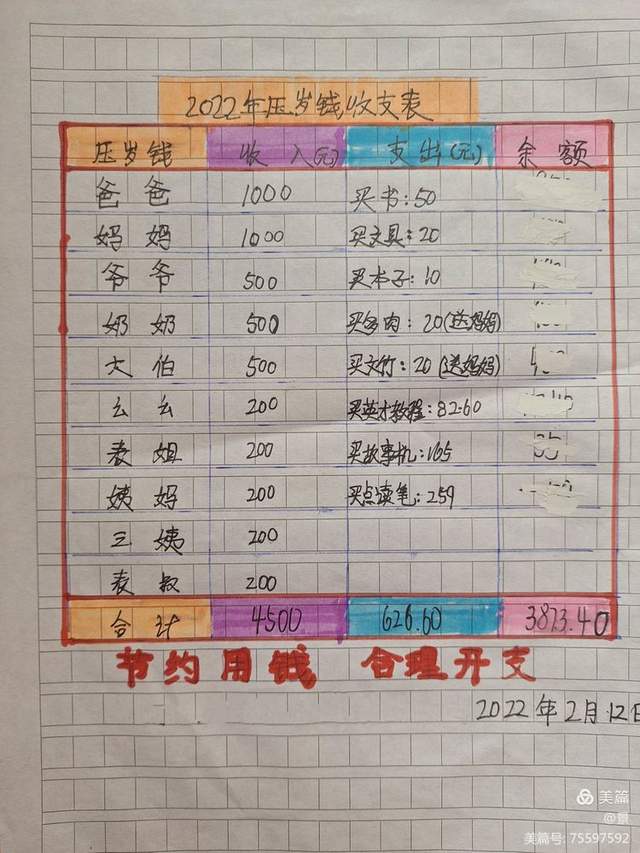 2022年压岁钱收支表
压岁钱 收入(元) 支出(元) 余额
爸爸 1000 买书:50
妈妈 1000 买文具:20
爷爷 500 买本子:10
奶奶 500 买多肉:20(送妈妈)
大伯 500 买文竹:20(送妈妈)
幺幺 200 买英才教程:82.60
表姐 200 买故事机:165
姨妈 200 买点读笔:259
三姨 200
表叔 200
合计 4500 626.60 3873.40
节约用钱 合理开支
2022年2月12日
美篇
@景
美篇号:75597592